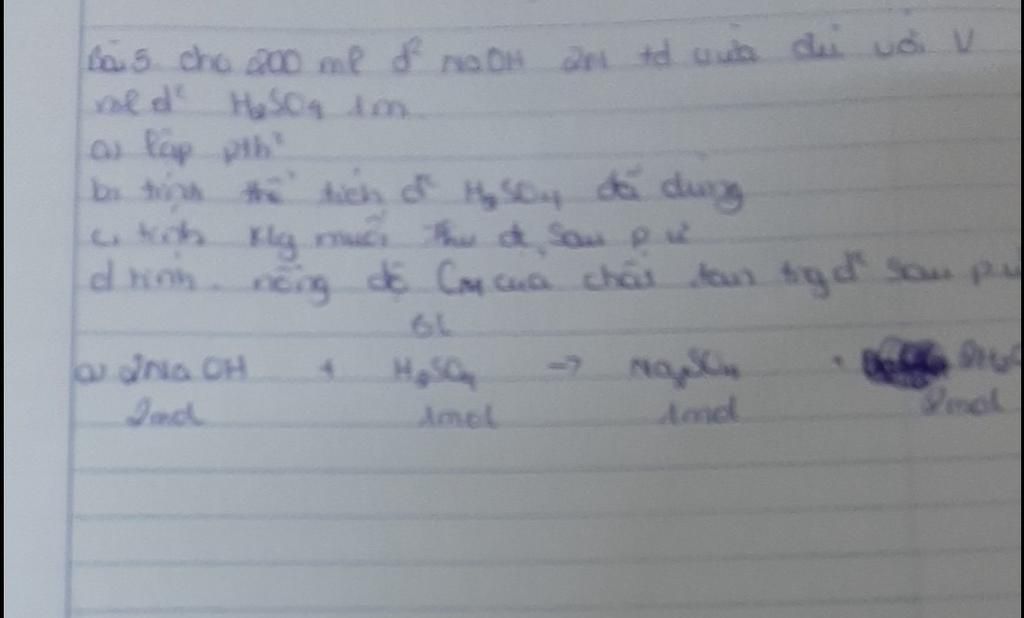 Bài 5 cho 200 ml dd NaOH 2M td vừa đủ với V
ml dd H2SO4 1M
a) lập pth
b. tính thể tích dd H2SO4 đã dùng
c, tính klg muối thu đc sau pư
d tính. nồng độ CM của chất tan trg dd sau pư
GL
a) 2NaOH + H2SO4 -> Na2SO4 + 2H2O
2mol 1mol 1mol 2mol